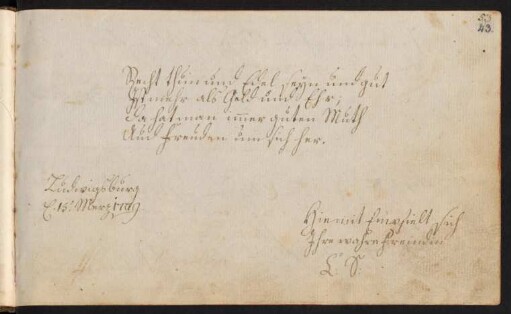 53
43.
Recht thun und Edel seyn und gut
Ist mehr als Geld und Ehr,
da hat man immer guten Muth
Und Freuden um sich her.
Ludwigsburg
d. 15t Merz
Hiemit Empfielt sich
Ihre wahre Freundin
C. S.